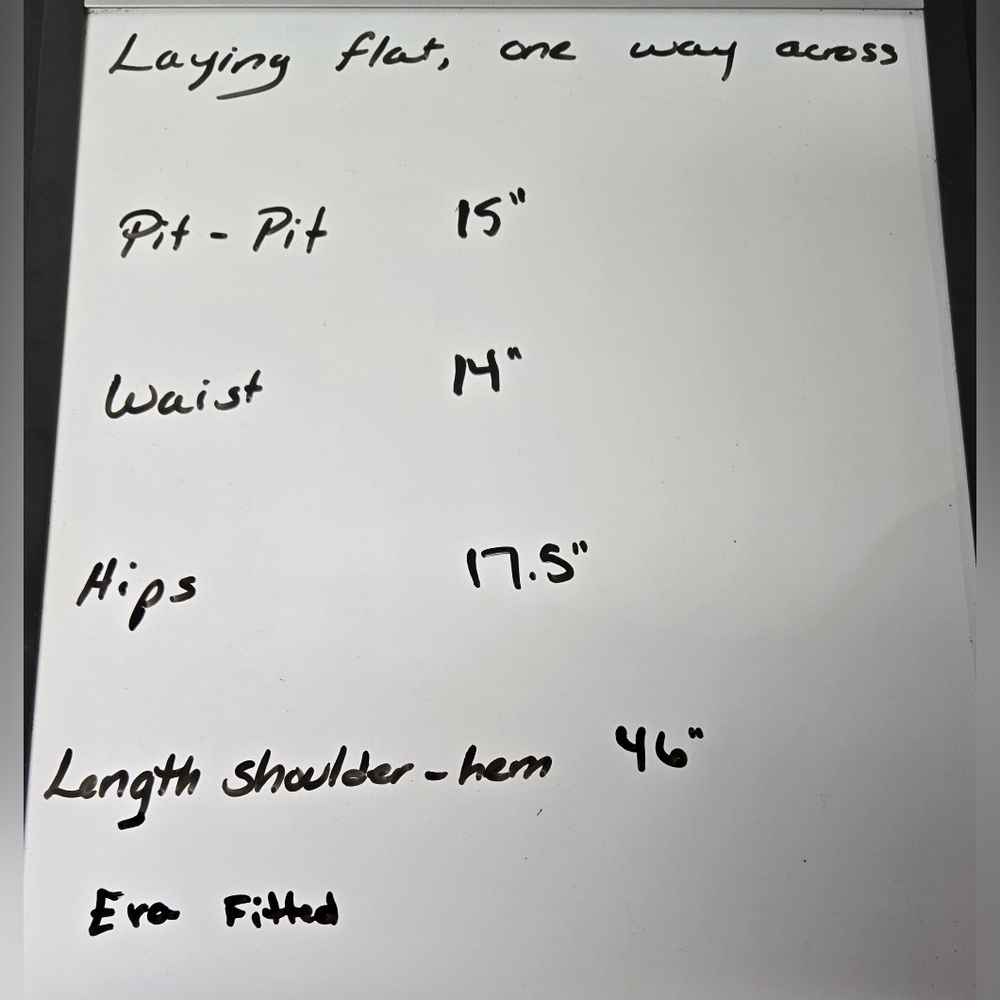 Laying flat, one way across
Pit - Pit 15"
Waist 14"
Hips 17.5"
Length shoulder - hem 46"
Era Fitted